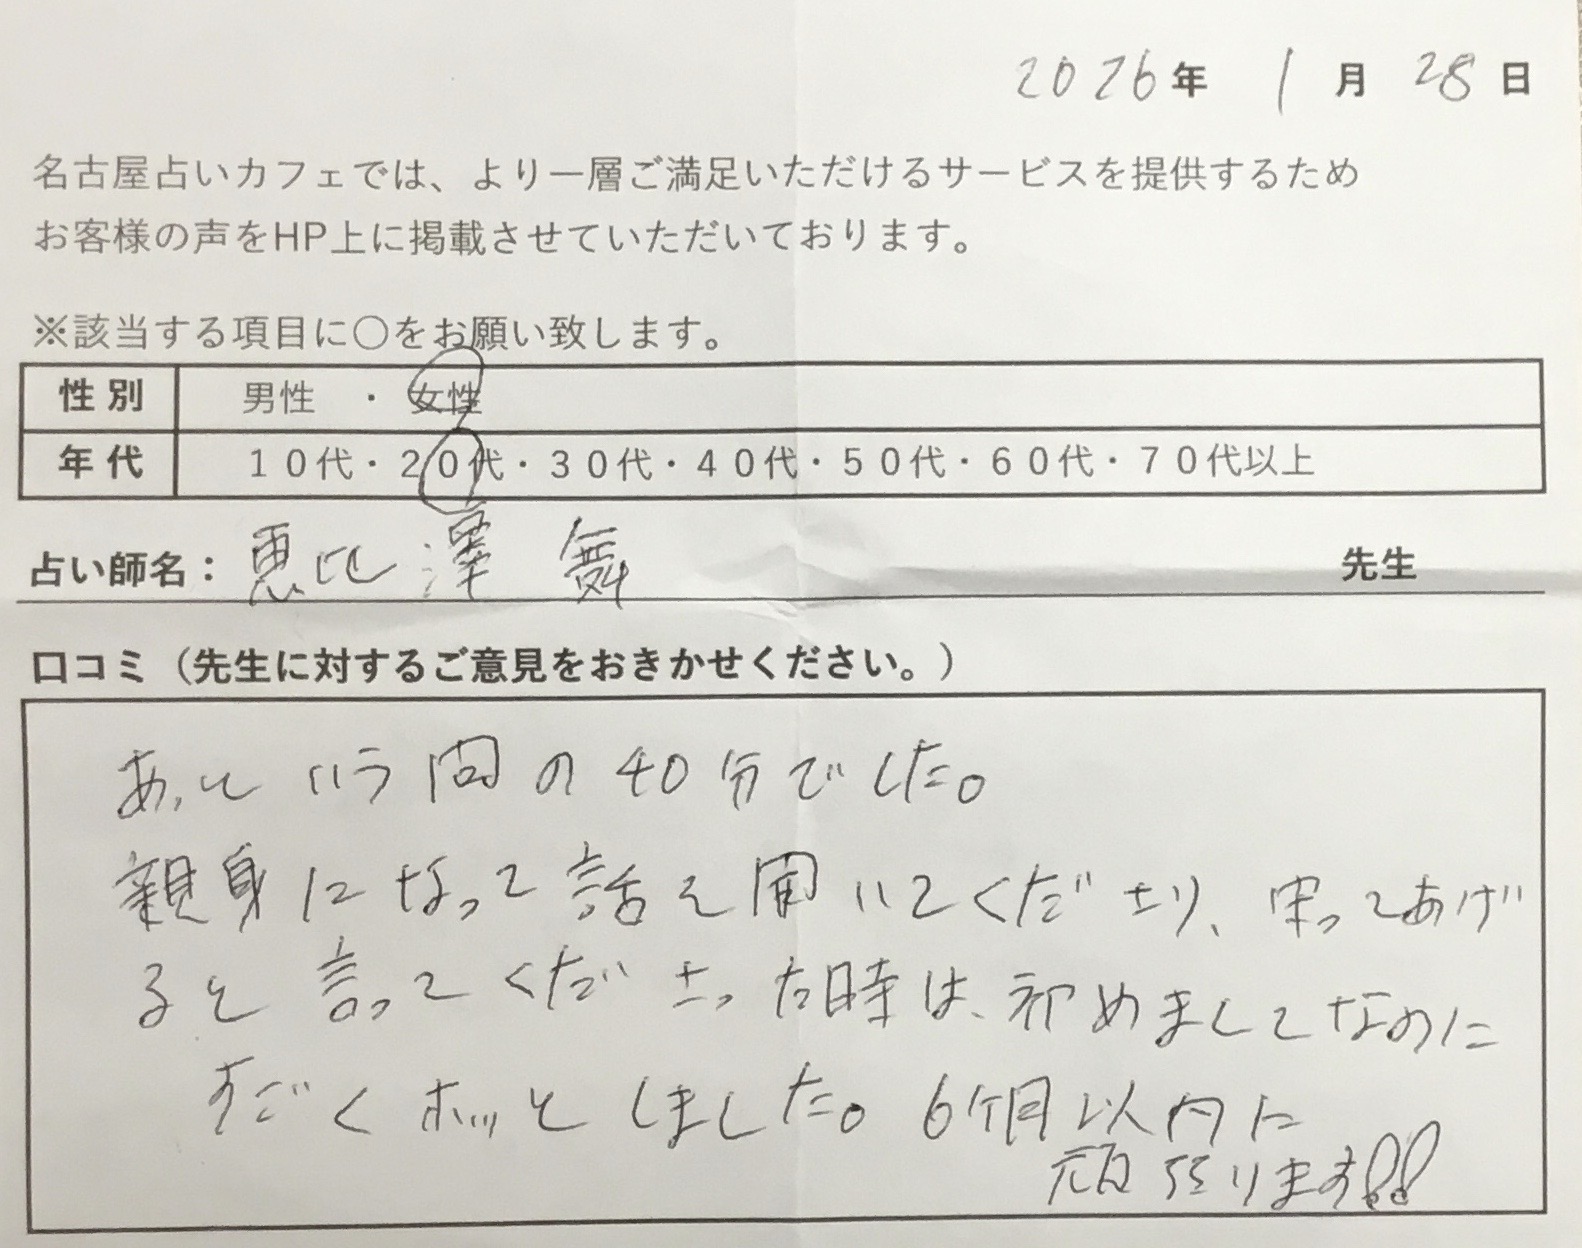 2026年 1月 28日
名古屋占いカフェでは、より一層ご満足いただけるサービスを提供するため
お客様の声をHP上に掲載させていただいております。
※該当する項目に〇をお願い致します。
性別 男性 ・ 女性
年代 10代・20代・30代・40代・50代・60代・70代以上
占い師名： 恵比澤 舞 先生
口コミ（先生に対するご意見をおきかせください。）
あっという間の40分でした。
親身になって話を聞いてくださり、守ってあげ
ると言ってくださった時は、初めましてなのに
すごくホッとしました。6ヶ月以内に
頑張ります!!